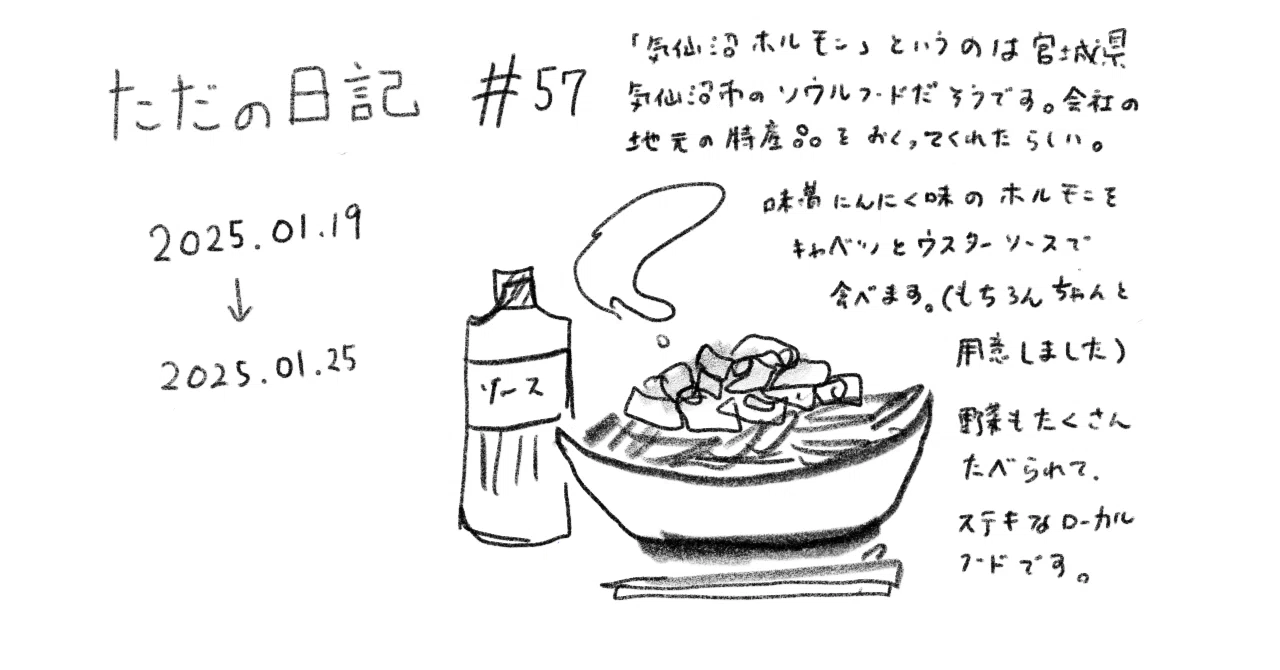 ただの日記 #57
2025.01.19
↓
2025.01.25
「気仙沼ホルモン」というのは宮城県
気仙沼市のソウルフードだそうです。会社の
地元の特産品をおくってくれたらしい。
味噌にんにく味のホルモンを
キャベツとウスターソースで
食べます。(もちろんちゃんと
用意しました)
野菜もたくさん
たべられて、
ステキなローカル
フードです。
ソース